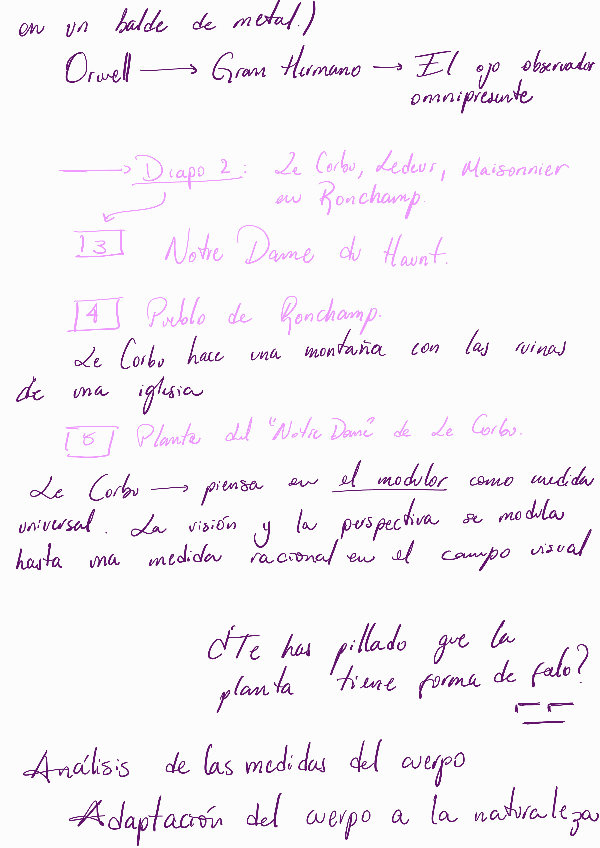 en un balde de metal.)
Orwell → Gran Hermano → El ojo observador
omnipresente
→ Diapo 2: Le Corbu, Ledeur, Maisonnier
en Ronchamp.
13 Notre Dame du Haunt.
4 Pueblo de Ronchamp.
Le Corbu hace una montaña con las ruinas
de una iglesia
5 Planta del "Notre Dame" de Le Corbu.
Le Corbu → piensa en el modulor como medida
universal. La visión y la perspectiva se modula
hasta una medida racional en el campo visual
¿Te has pillado que la
planta tiene forma de falo?
Análisis de las medidas del cuerpo
Adaptación del cuerpo a la naturaleza